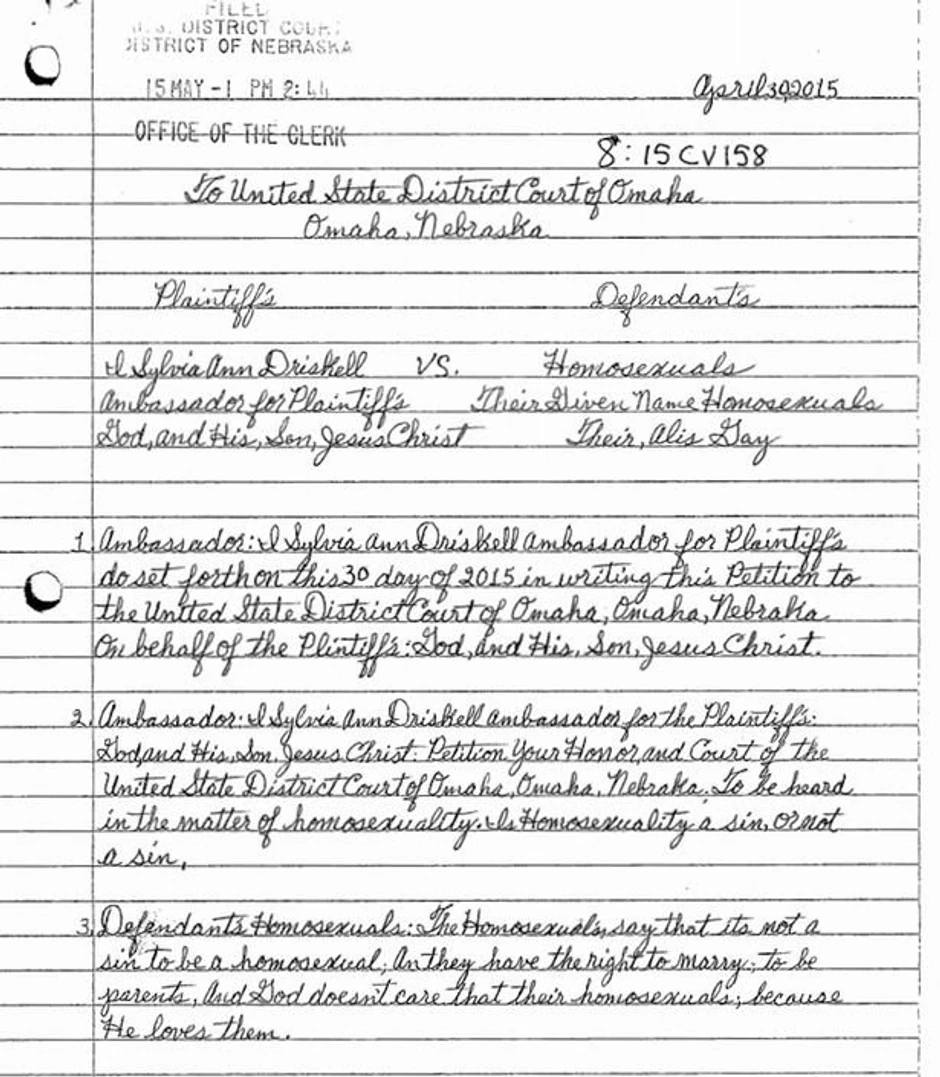 FILED
U.S. DISTRICT COURT
DISTRICT OF NEBRASKA
15 MAY -1 PM 2:44
April 30, 2015
OFFICE OF THE CLERK
8:15CV158
To United State District Court of Omaha
Omaha, Nebraska
Plaintiff's Defendant's
I Sylvia Ann Driskell VS. Homosexuals
Ambassador for Plaintiff's Their Given Name Homosexuals
God, and His, Son, Jesus Christ Their, Alis Gay
1. Ambassador: I Sylvia Ann Driskell ambassador for Plaintiff's
do set forth on this 30 day of 2015 in writing this Petition to
the United State District Court of Omaha, Omaha, Nebraka
On behalf of the Plintiff's: God, and His, Son, Jesus Christ.
2. Ambassador: I Sylvia Ann Driskell ambassador for the Plaintiff's:
God, and His, Son, Jesus Christ: Petition Your Honor, and Court of the
United State District Court of Omaha, Omaha, Nebraka. To be heard
in the matter of homosexuality. Is Homosexuality a sin, or not
a sin,
3. Defendant's Homosexuals: The Homosexuals, say that its not a
sin to be a homosexual; An they have the right to marry; to be
parents, And God doesn't care that their homosexuals; because
He loves them.